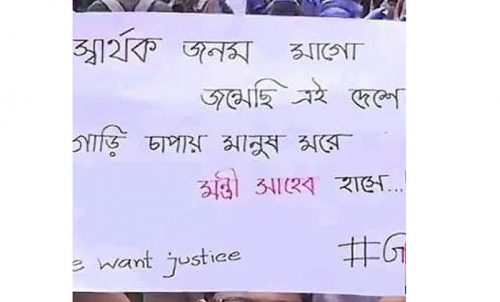 স্বার্থক জনম মাগো
জন্মেছি এই দেশে
গাড়ি চাপায় মানুষ মরে
মন্ত্রী সাহেব হাসে...
e want justice